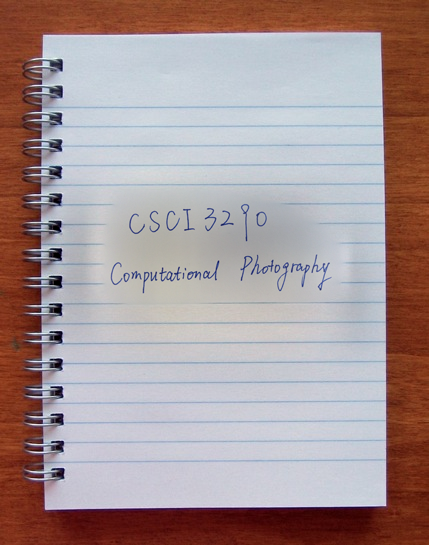 CSCI 3290
Computational Photography